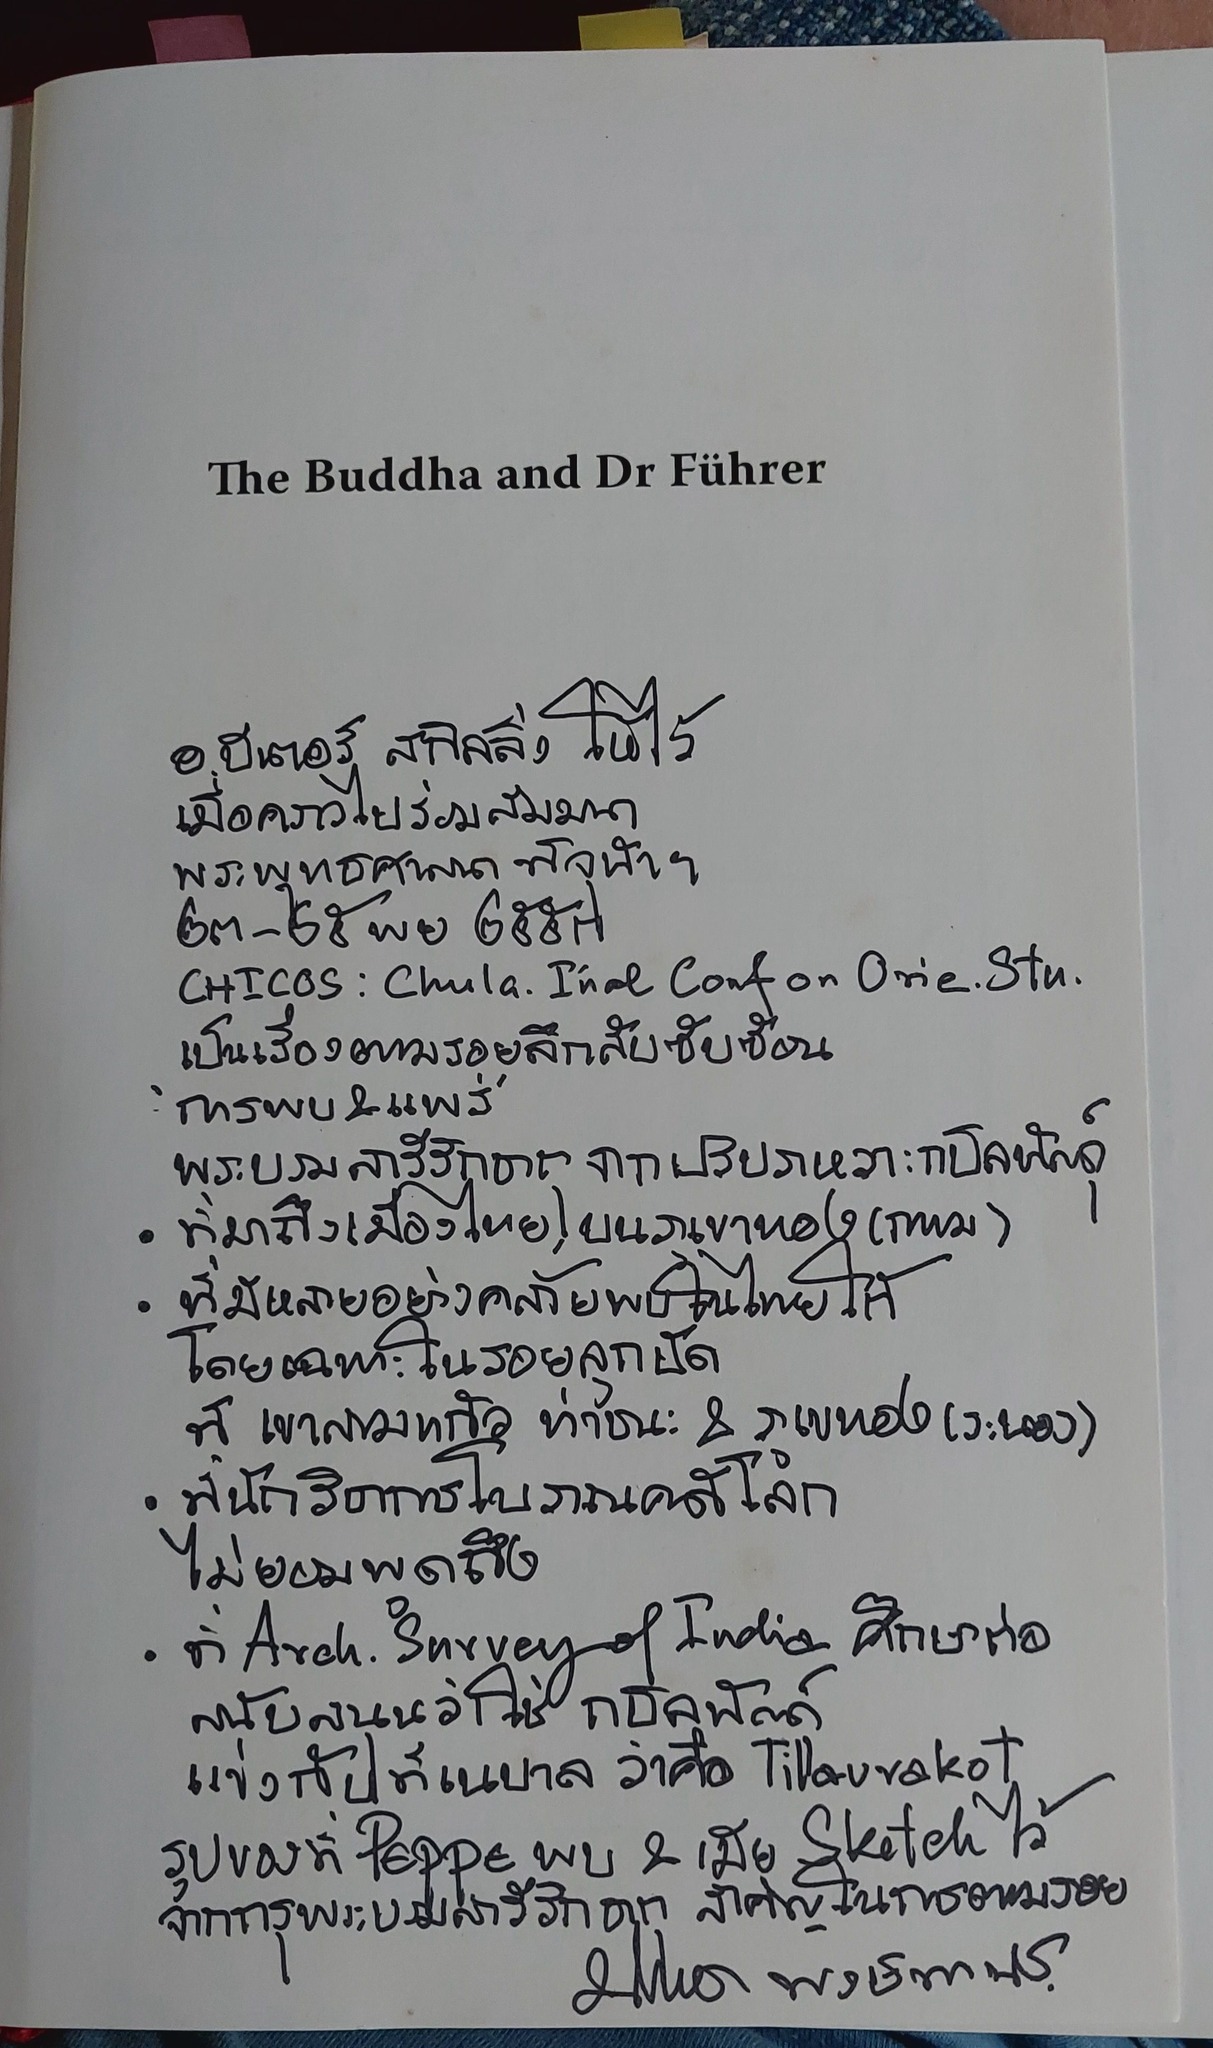 The Buddha and Dr Führer
อ.ปีเตอร์ สกิลลิ่ง ให้ไว้
เมื่อคราวไปร่วมสัมมนา
พระพุทธศาสนา ที่จุฬาฯ
๒๓-๒๕ พย ๒๕๕๗
CHICOS: Chula. Int'l Conf on Orie. Stu.
เป็นเรื่องตามรอยลึกลับซับซ้อน
การพบ & แพร่
พระบรมสารีริกธาตุ จากปริปราหวา : กบิลพัสดุ์
• ที่มาถึงเมืองไทย บนภูเขาทอง (กทม)
• ที่มีหลายอย่างคล้ายพบในไทยใต้
โดยเฉพาะในรอยลูกปัด
ที่ เขาสามแก้ว ท่าชนะ & ภูเขาทอง (ระนอง)
• ที่นักวิชาการโบราณคดีโลก
ไม่ยอมพูดถึง
• ที่ Arch. Survey of India ศึกษาต่อ
สนับสนุนว่าใช่ กบิลพัสดุ์
แข่งกับที่เนปาล ว่าคือ Tillaurakot
รูปของที่ PEPPE พบ & เมีย Sketch ไว้
จากกรุพระบรมสารีริกธาตุ สำคัญในการตามรอย